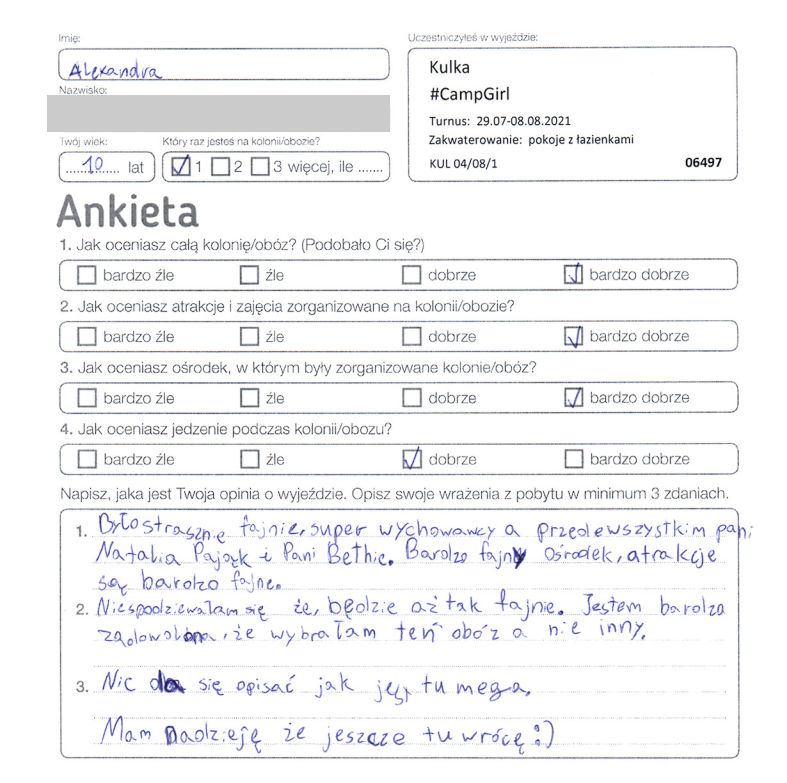 Imię:
Alexandra
Nazwisko:
Twój wiek:
Który raz jesteś na kolonii/obozie?
10 lat
1 2 3 więcej, ile .......
Uczestniczyłeś w wyjeździe:
Kulka
#CampGirl
Turnus: 29.07-08.08.2021
Zakwaterowanie: pokoje z łazienkami
KUL 04/08/1 06497
Ankieta
1. Jak oceniasz całą kolonię/obóz? (Podobało Ci się?)
bardzo źle źle dobrze bardzo dobrze
2. Jak oceniasz atrakcje i zajęcia zorganizowane na kolonii/obozie?
bardzo źle źle dobrze bardzo dobrze
3. Jak oceniasz ośrodek, w którym były zorganizowane kolonie/obóz?
bardzo źle źle dobrze bardzo dobrze
4. Jak oceniasz jedzenie podczas kolonii/obozu?
bardzo źle źle dobrze bardzo dobrze
Napisz, jaka jest Twoja opinia o wyjeździe. Opisz swoje wrażenia z pobytu w minimum 3 zdaniach.
1. Było strasznie fajnie, super wychowawcy a przedewszystkim pani
Natalia Pająk i Pani Bethie. Bardzo fajny Ośrodek, atrakcje
są bardzo fajne.
2. Niespodziewałam się że, będzie aż tak fajnie. Jestem bardzo
zadowolona, że wybrałam ten obóz a nie inny.
3. Nic da się opisać jak jest tu mega,
Mam nadzieję że jeszcze tu wrócę :)